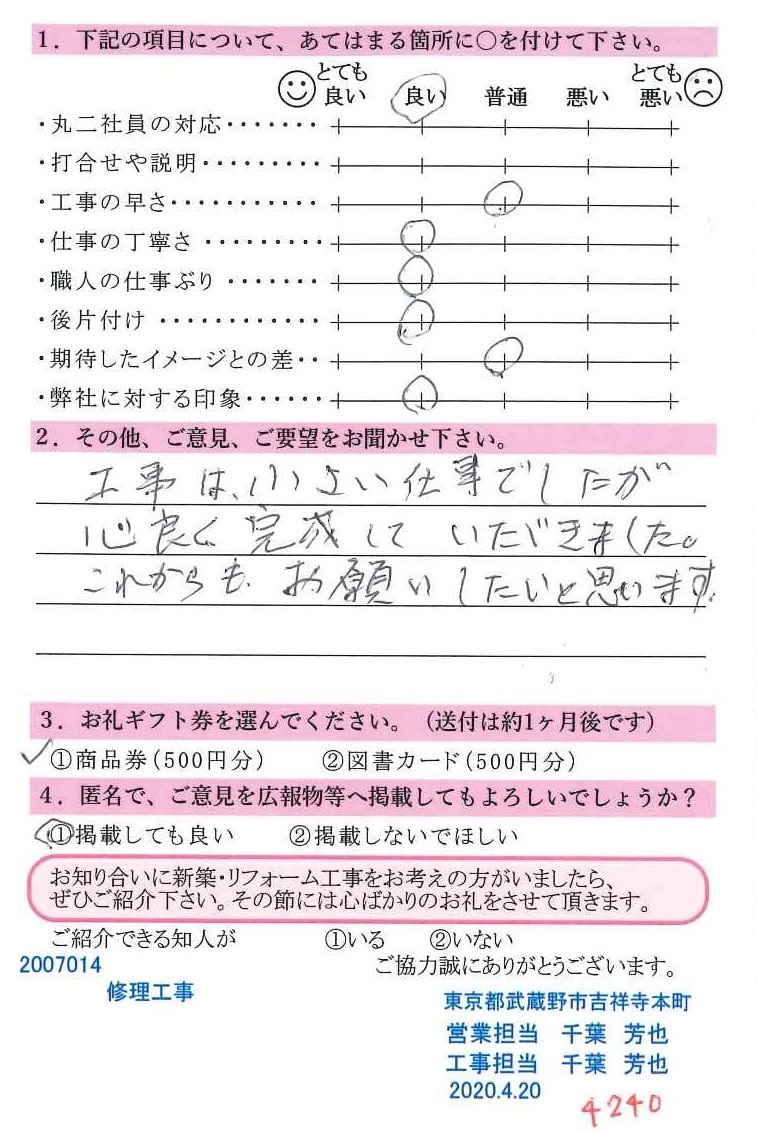 1．下記の項目について、あてはまる箇所に○を付けて下さい。
とても良い 良い 普通 悪い とても悪い
・丸二社員の対応・・・・・・・
・打合せや説明・・・・・・・・・
・工事の早さ・・・・・・・・・・・
・仕事の丁寧さ・・・・・・・・・
・職人の仕事ぶり・・・・・・・
・後片付け・・・・・・・・・・・・
・期待したイメージとの差・・
・弊社に対する印象・・・・・・
2．その他、ご意見、ご要望をお聞かせ下さい。
工事は、小さい仕事でしたが
心良く完成していただきました。
これからもお願いしたいと思います。
3．お礼ギフト券を選んでください。（送付は約1ヶ月後です）
①商品券（500円分） ②図書カード（500円分）
4．匿名で、ご意見を広報物等へ掲載してもよろしいでしょうか？
①掲載しても良い ②掲載しないでほしい
お知り合いに新築・リフォーム工事をお考えの方がいましたら、
ぜひご紹介下さい。その節には心ばかりのお礼をさせて頂きます。
ご紹介できる知人が ①いる ②いない
2007014 ご協力誠にありがとうございます。
修理工事
東京都武蔵野市吉祥寺本町
営業担当 千葉 芳也
工事担当 千葉 芳也
2020.4.20
4240